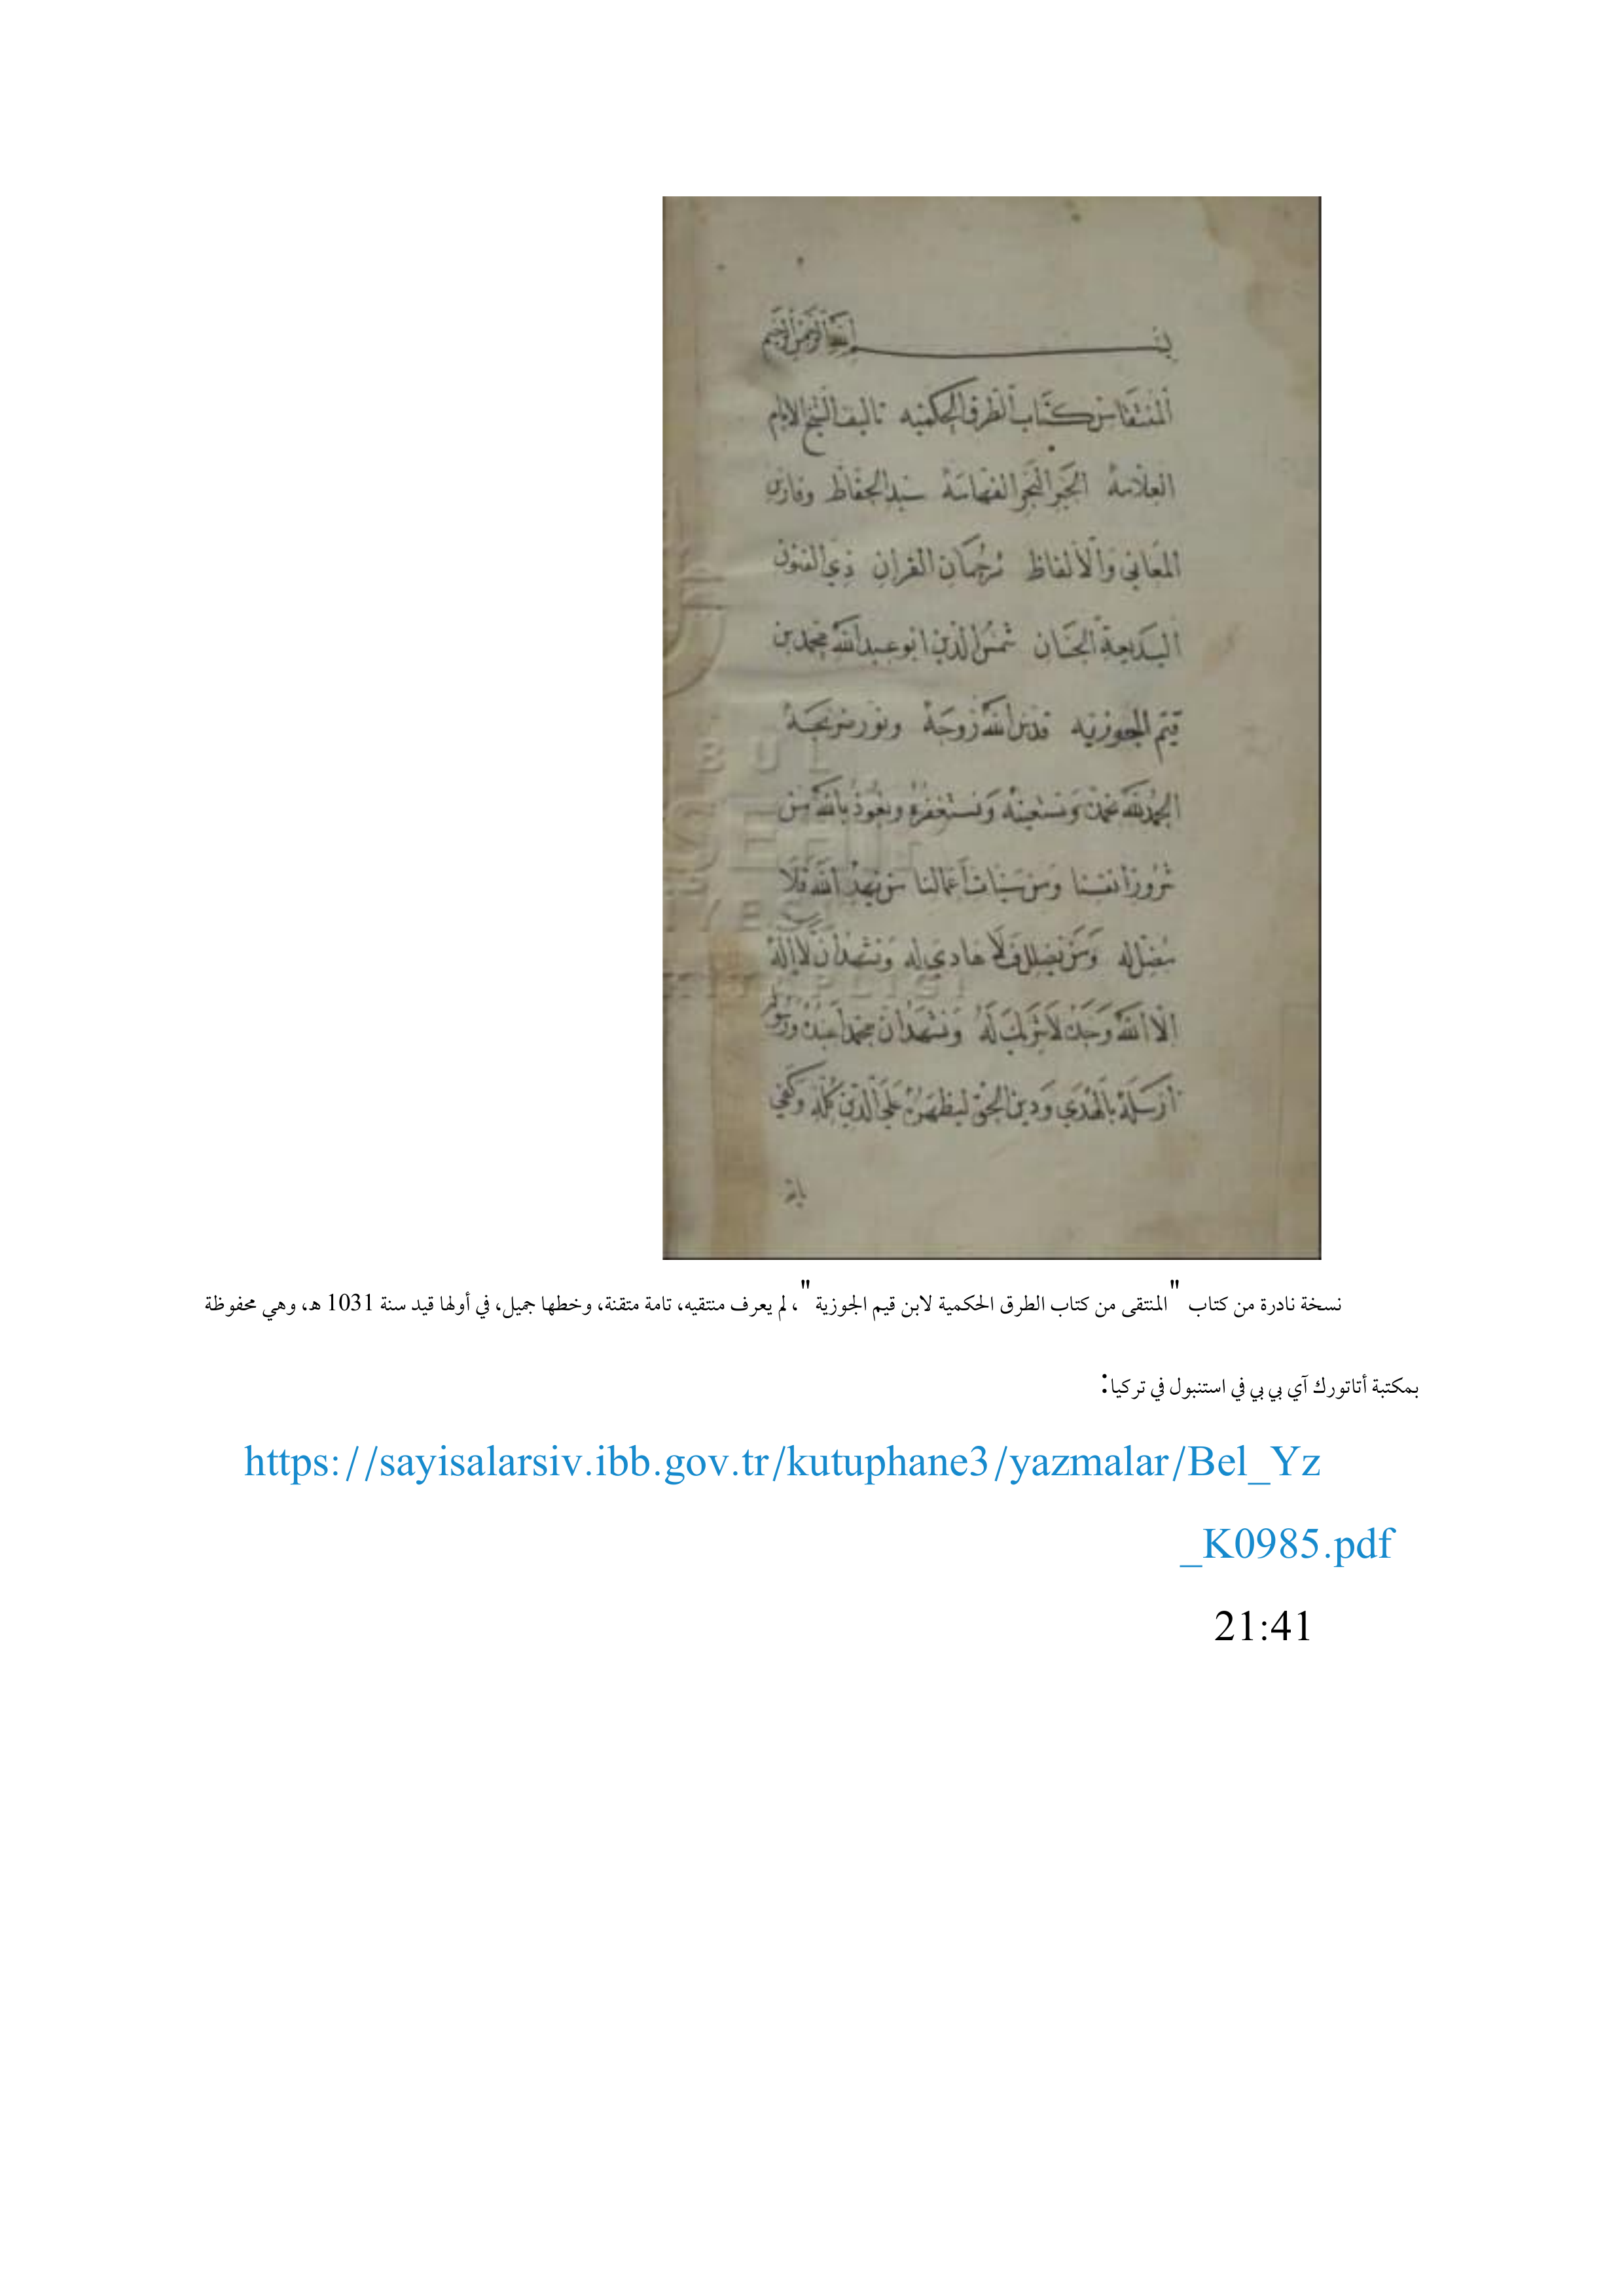 بسم الله الرحمن الرحيم
المنتقا من كتاب الطرق الحكميه تاليف الشيخ الامام
العلامة الحبر البحر الفهامة سيد الحفاظ وفارس
المعاني والألفاظ ترجمان القران ذي الفنون
البديعة الحسان شمس الدين ابو عبد الله محمد بن
قيم الجوزيه قدس الله روحه ونور ضريحه
الحمد لله نحمده ونستعينه ونستغفره ونعوذ بالله من
شرور انفسنا ومن سيئات أعمالنا من يهد الله فلا
مضل له ومن يضلل فلا هادي له ونشهد ان لا إله
الا الله وحده لا شريك له ونشهد ان محمدا عبده ورسوله
أرسله بالهدى ودين الحق ليظهره على الدين كله وكفى
بالله
نسخة نادرة من كتاب "المنتقى من كتاب الطرق الحكمية لابن قيم الجوزية"، لم يعرف منتقيه، تامة متقنة، وخطها جميل، في أولها قيد سنة 1031 هـ، وهي محفوظة
بمكتبة أتاتورك آي بي بي في استنبول في تركيا:
https://sayisalarsiv.ibb.gov.tr/kutuphane3/yazmalar/Bel_Yz
_K0985.pdf
21:41